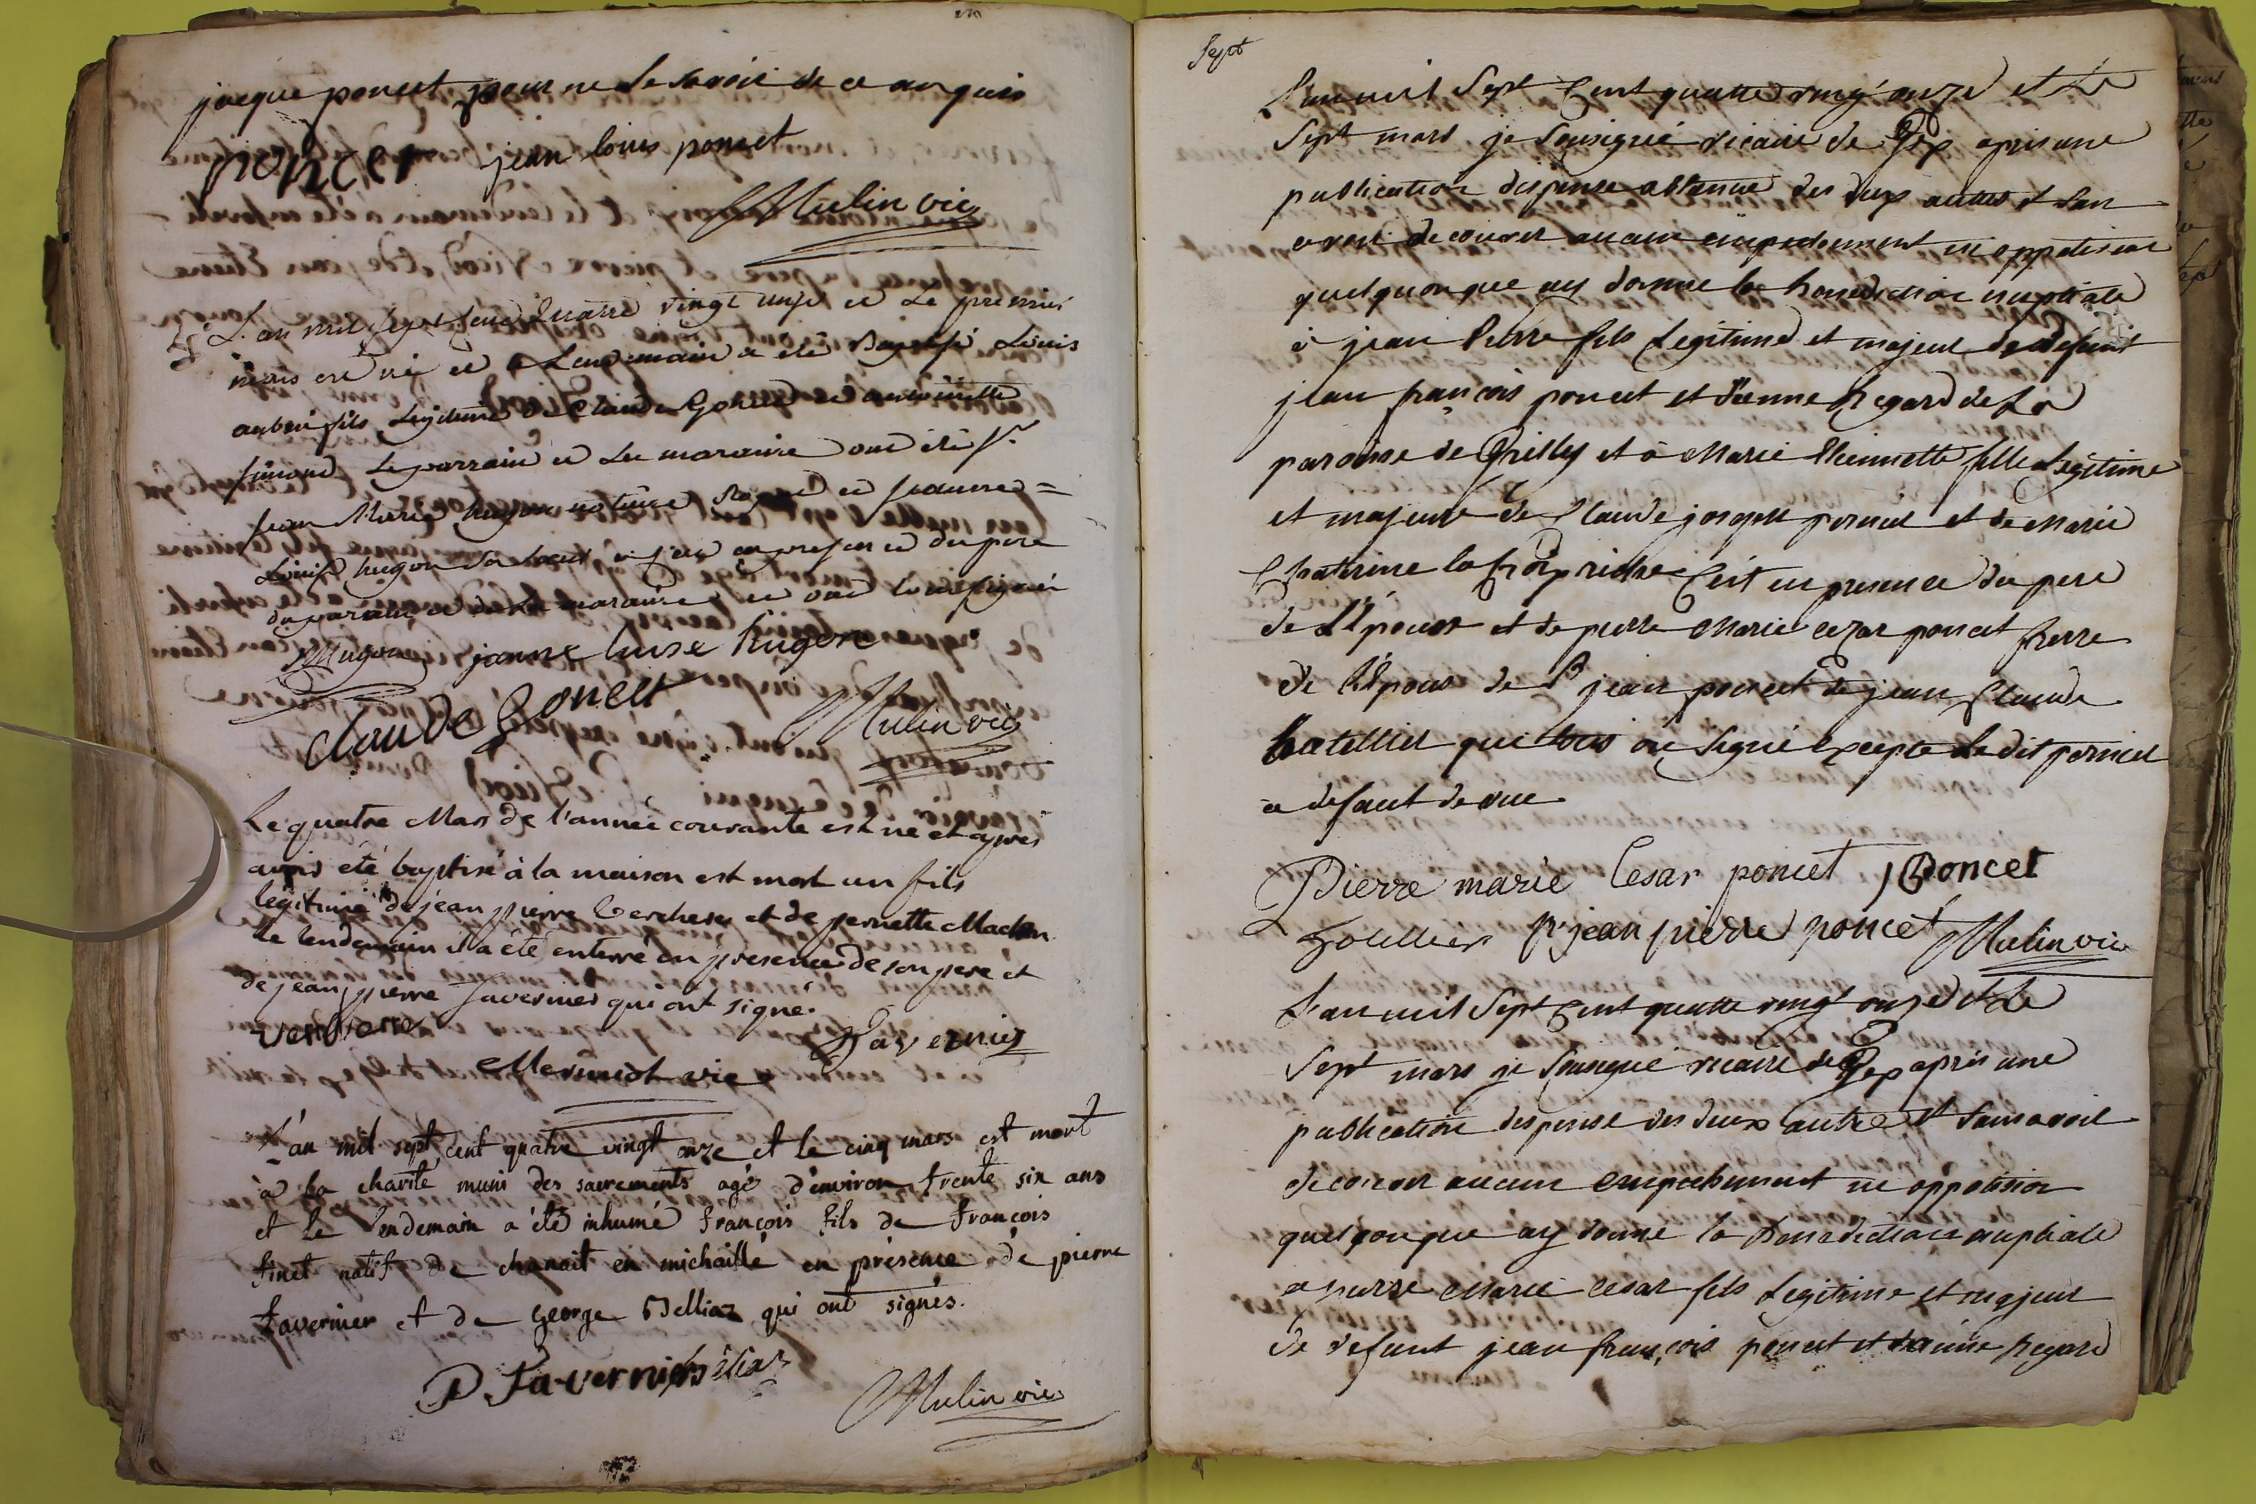 jacque poncet pour ne le savoir de ce anquis
poncet jean louis poncet
Mulin vic
L'an mil sept cent quatre vingt onze et le premier
mars est né et le lendemain a été Baptisé Louis
aubin fils legitime de Claude Gonet et antoinette
simond le parrain et la maraine ont été sr.
jean Marie hugon notaire Royal et jeanne =
Louise hugon sa soeur en présence du pere
du parain et de la maraine et ont tous signés
Hugon janne luise hugon
claude Gonet
Mulin vic
Le quatre Mars de l'année courante est né et après
avoir été baptisé à la maison est mort un fils
légitime de jean pierre Vercheres et de pernette
le lendemain il a été enterré en présence de son pere et
de jean pierre Tavernier qui ont signé.
Tavernier
Mermet vic
L'an mil sept cent quatre vingt onze et le cinq mars est mort
à la charité muni des sacrements agé d'environ trente six ans
et le lendemain a été inhumé françois fils de françois
finet natif de chanait en michaille en présence de pierre
tavernier et de George Belliaz qui ont signés.
P Tavernier
Mulin vic
Sept
L'an mil Sept Cent quatre vingt onze et Le
Sept mars je Sousigné vicaire de Gex apris une
publication dispense obtenue des deux autres et san
avoir decouver aucun empechement ni oppotision
quelquonque ay donné la benediction nuptiale
à jean Pierre fils Legitime et majeur de defunt
jean françois poncet et d'enne Regard de La
paroisse de Grilly et à Marie Thiennette fille Legitime
et majeure de Claude joseph perniet et de Marie
Chaterine la Croix Ceci en presence du pere
de l'Epouse et de pierre Marie cezar poncet frerre
de l'Epoux de Sr jean poncet de jean Claude
batellier qui tous on signé Excepte Le dit perniet
a defaut de vue
Pierre marie Cesar poncet J Poncet
jean pierre poncet Mulin vic
L'an mil Sept Cent quatre vingt onze et Le
Sept mars je Sousigné vicaire de Gex apris une
publication dispense des deux autre et sans avoir
decouver aucun empechement ni oppotision
quelquonque ay donné la benediction nuptiale
a pierre Marie cesar fils Legitime et majeur
de defunt jean françois poncet et d'anne Regard